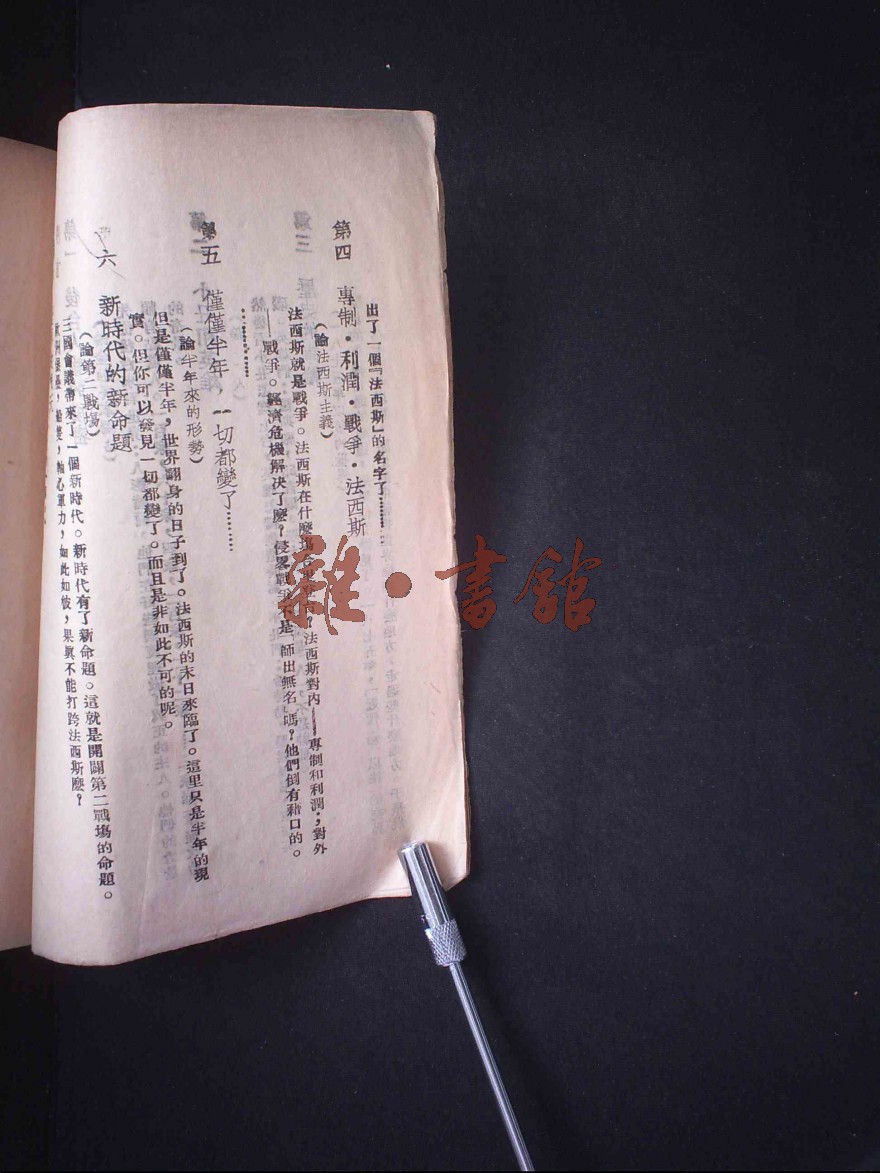 出了一個『法西斯』的名字了………
第四 專制·利潤·戰爭·法西斯
（論法西斯主義）
法西斯就是戰爭。法西斯在什麼場 ？法西斯對內——專制和利潤；對外
——戰爭。經濟危機解決了麼？侵畧戰爭不是「師出無名」嗎？他們倒有藉口的。
第五 僅僅半年，一切都變了………
（論半年來的形勢）
但是僅僅半年，世界翻身的日子到了。法西斯的末日來臨了。這里只是半年的現
實。但你可以發見一切都變了。而且是非如此不可的呢。
六 新時代的新命題
（論第二戰場）
三國會議帶來了一個新時代。新時代有了新命題。這就是開闢第二戰場的命題。
軸心軍力，如此如彼，果眞不能打跨法西斯麼？
雜·書館